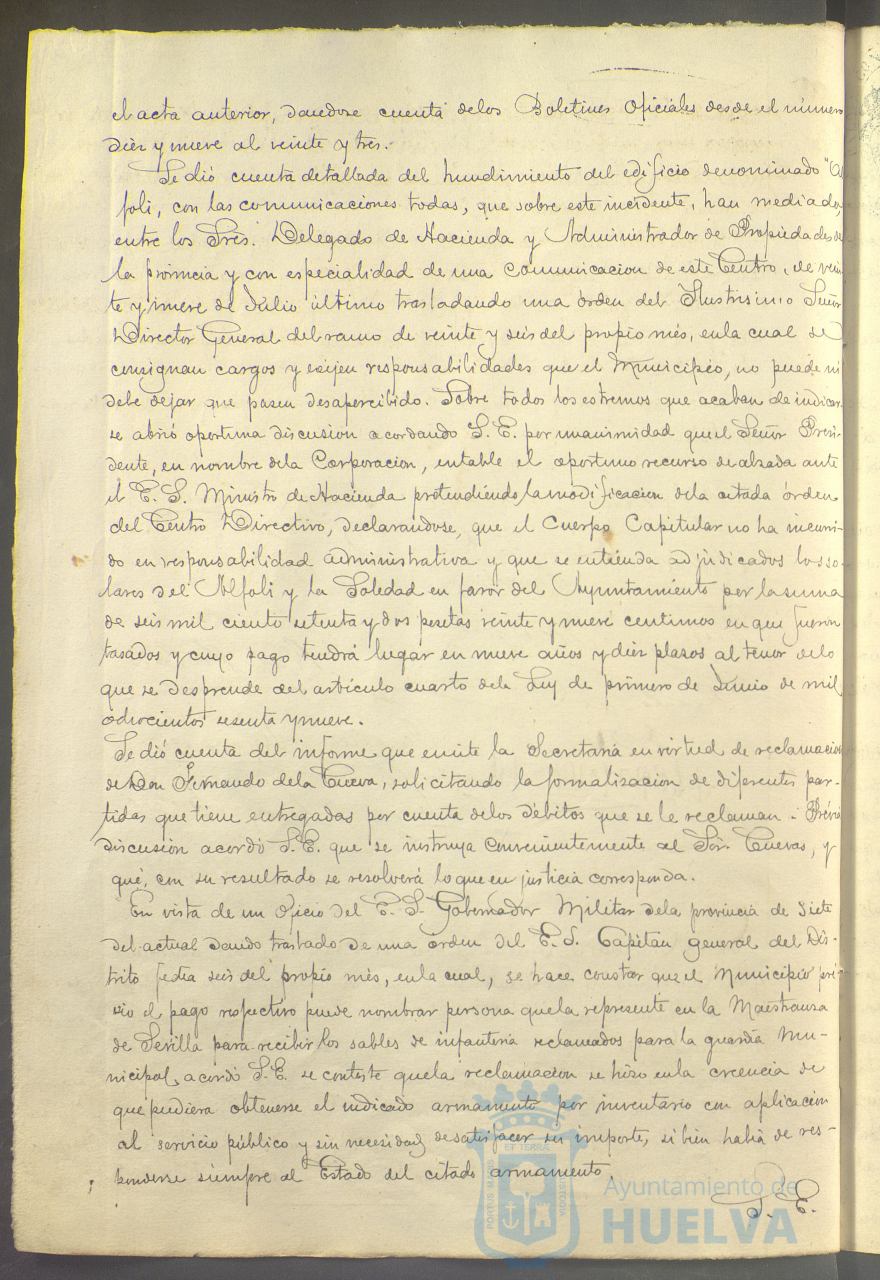 el acta anterior, dandose cuenta delos Boletines Oficiales desde el número
diez y nueve al veinte y tres.
Se dió cuenta detallada del hundimiento del edificio denominado "Al
foli, con las comunicaciones todas, que sobre este incidente, han mediado,
entre los Sres. Delegado de Hacienda y Administrador de Propiedades de
la provincia y con especialidad de una comunicacion de este Centro, de vein
te y nueve de Julio último trasladando una orden del Ilustrisimo Señor
Director General del ramo de veinte y seis del propio més, en la cual se
consignan cargos y exijen responsabilidades que el Municipio, no puede ni
debe dejar que pasen desapercibido. Sobre todos los estremos que acaban de indicar
se abrió oportuna discusion acordando S. E. por unanimidad que el Señor Presi-
dente, en nombre dela Corporacion, entable el oportuno recurso de alzada ante
el E. S. Ministro de Hacienda pretendiendo la modificacion dela citada órden
del Centro Directivo, declarandose, que el Cuerpo Capitular no ha incurri-
do en responsabilidad administrativa y que se entienda adjudicados los so-
lares del Alfoli y la Soledad en favor del Ayuntamiento por la suma
de seis mil ciento setenta y dos pesetas veinte y nueve centimos en que fueron
tasados y cuyo pago tendrá lugar en nueve años y diez plazos al tenor delo
que se desprende del articulo cuarto dela Ley de primero de Junio de mil
ochocientos sesenta y nueve.
Se dió cuenta del informe que emite la Secretaria en virtud de reclamacion
de Don Fernando dela Cueva, solicitando la formalizacion de diferentes par-
tidas que tiene entregadas por cuenta delos débitos que se le reclaman. Prévia
discusión acordó S. E. que se instruya convenientemente al Sor. Cuevas, y
qué, con su resultado se resolverá lo que en justicia corresponda.
En vista de un Oficio del E. S. Gobernador Militar dela provincia de siete
del actual dando traslado de una órden del E. S. Capitan general del Dis-
trito fecha seis del propio més, en la cual, se hace constar que el Municipio pré-
vio el pago respectivo puede nombrar persona que la represente en la Maestranza
de Sevilla para recibir los sables de infanteria reclamados para la guardia Mu-
nicipal, acordó S. E. se conteste que la reclamacion se hizo en la creencia de
que pudiera obtenerse el indicado armamento por inventario con aplicacion
al servicio público y sin necesidad de satisfacer su importe, si bien habia de res-
ponderse siempre al Estado del citado armamento.
S. E.
Ayuntamiento de
HUELVA